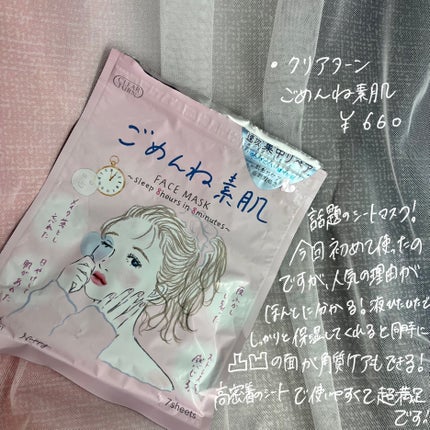 ・クリアターン
ごめんね素肌
¥660
CLEAR TURN
ごめんね素肌
FACE MASK
~sleep 8hours in 8minutes~
7sheets
話題のシートマスク!
今回初めて使ったの
ですが、人気の理由が
ほんとに分かる!液がひたひたで
しっかりと保湿してくれると同時に
凸凹の面が角質ケアもできる!
高密着のシートで使いやすくて超満足
です!